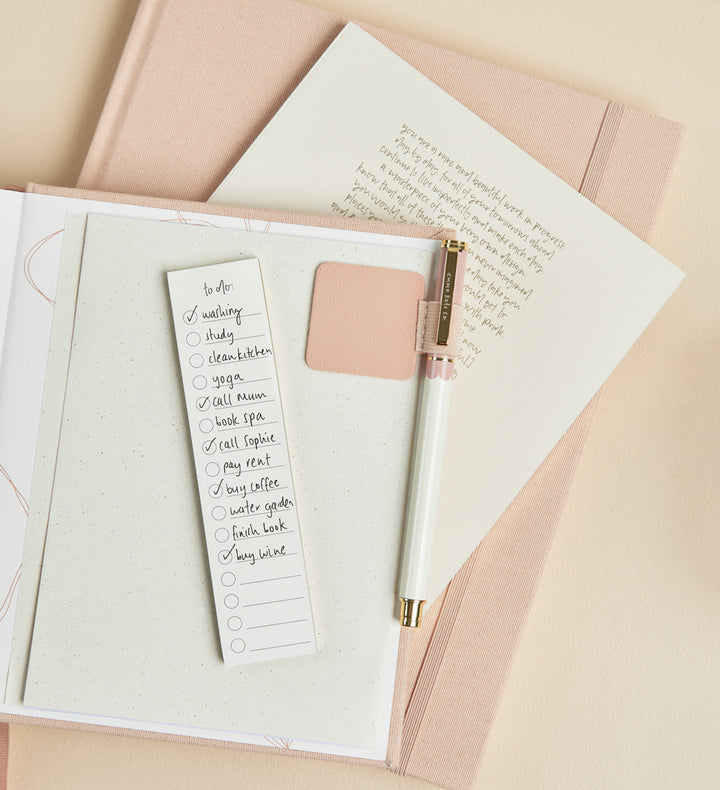 you are a rare and beautiful work in progress
day by day, for all of your tomorrows ahead
continue to live imperfectly and make each day
a masterpiece of your very own design
know that all of these
you would go
places you
never imagined
day take you
with pride
to do:
washing
study
clean kitchen
yoga
call Mum
book spa
call Sophie
pay rent
buy coffee
water garden
finish book
buy wine
emma kate co.